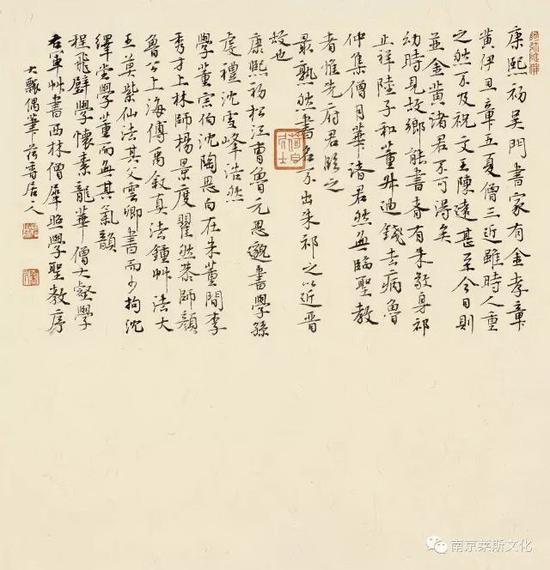 康熙初吴門書家有金孝章
黄伊丑章五夏僧三近雖時人重
之然不及祝文王陳遠甚至今日則
並金黄諸君不可得矣
幼時見故鄉能書者有朱敬身祁
止祥陸子和董叔迪錢去病魯
仲集僧月華諸君然無臨聖教
者惟先府君臨之
最熟然書名不出朱祁之以近晋
故也
康熙初松江曹魯元思邈書學孫
虔禮沈雪峰浩然
學董宗伯沈陶思白在朱董間李
秀才上林師楊景度瞿然恭師顔
魯公上海傅鬲叙真法鍾艸法大
王莫紫仙法其父雲卿書而少拘沈
繹堂學董而無其氣韻
程飛壁學懷素龍華僧大壑學
右軍艸書西林僧犀照學聖教序
大瓢偶筆 茗香居人
南京莱斯文化